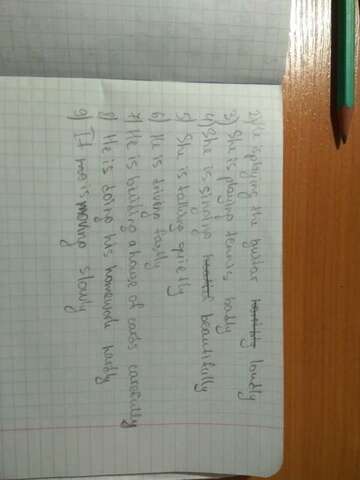 2) He is playing the guitar loudly
3) She is playing tennis badly
4) She is singing beautifully
5) She is talking quietly
6) He is driving fastly
7) He is building a house of cards carefully
8) He is doing his homework hardly
9) It is moving slowly